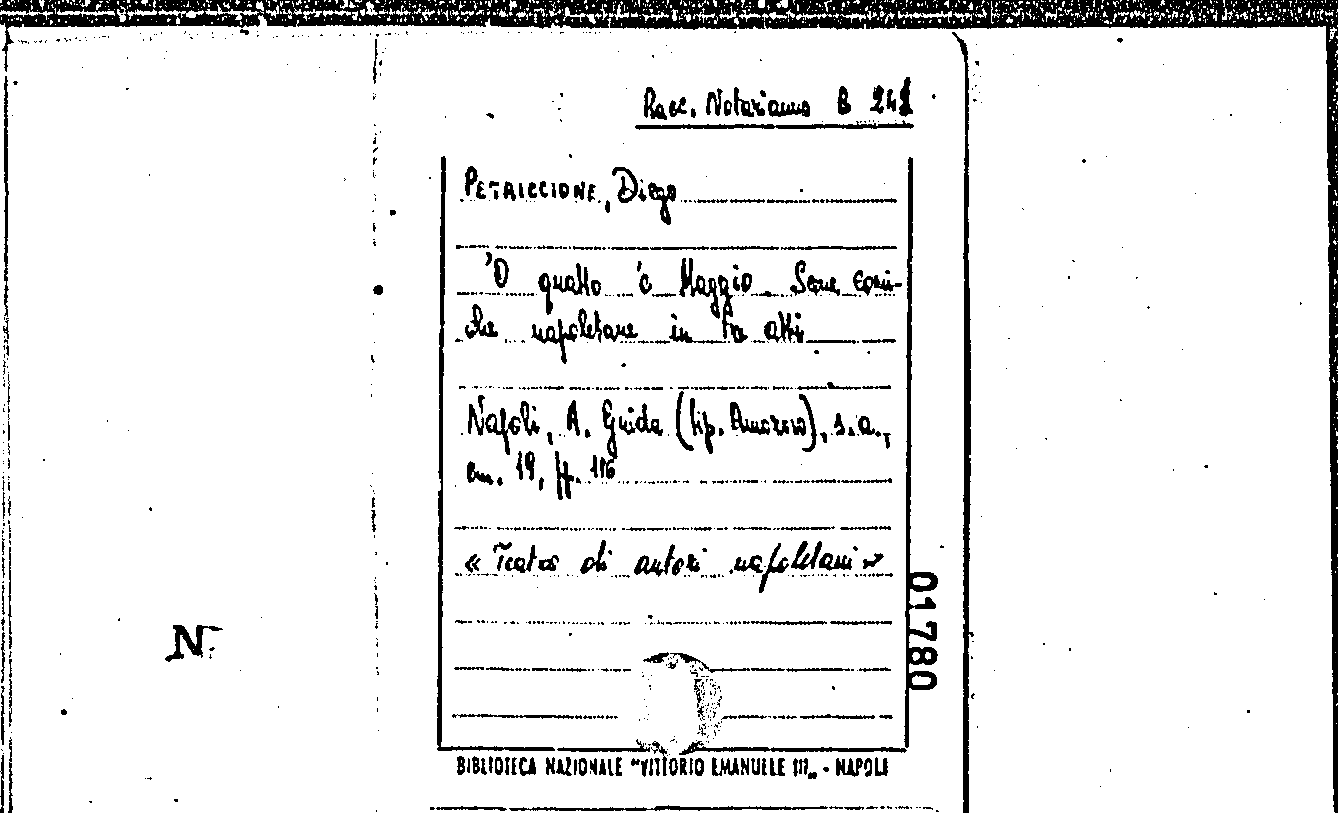 Racc. Notarianno B 242
PETRICCIONE, Diego
'O quatto 'e Maggio. Scene comi-
che napoletane in tre atti
Napoli, A. Guida (tip. Amoroso), s.a.,
cm. 19, pp. 116
« Teatro di autori napoletani »
01780
N.
BIBLIOTECA NAZIONALE "VITTORIO EMANUELE III„ - NAPOLI